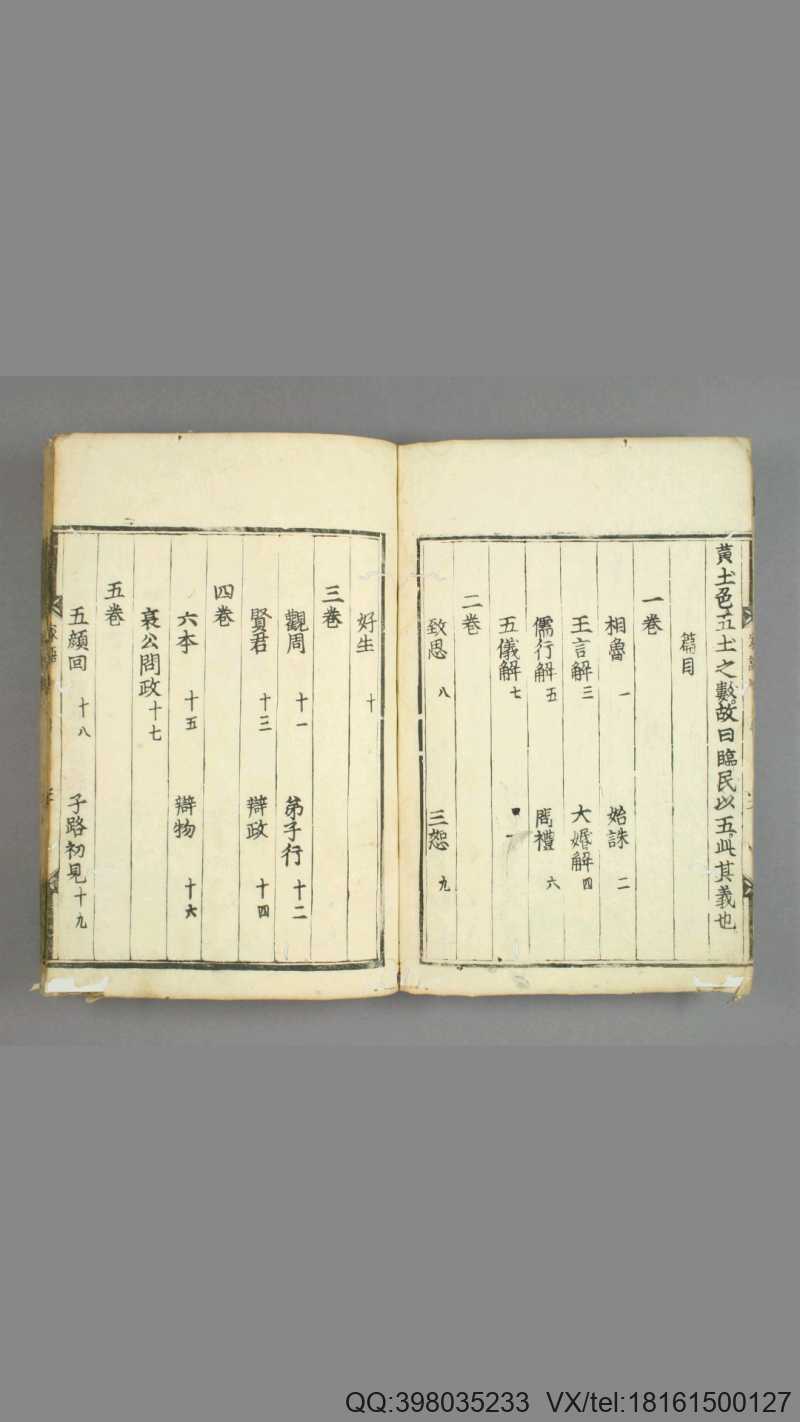 黃土色五土之數故曰臨民以五此其義也
篇目
一卷
相魯 一 始誅 二
王言解 三 大婚解 四
儒行解 五 問禮 六
五儀解 七
二卷
致思 八 三恕 九
好生 十
三卷
觀周 十一 弟子行 十二
賢君 十三 辯政 十四
四卷
六本 十五 辯物 十六
哀公問政 十七
五卷
五顏回 十八 子路初見 十九
QQ:398035233 VX/tel:18161500127